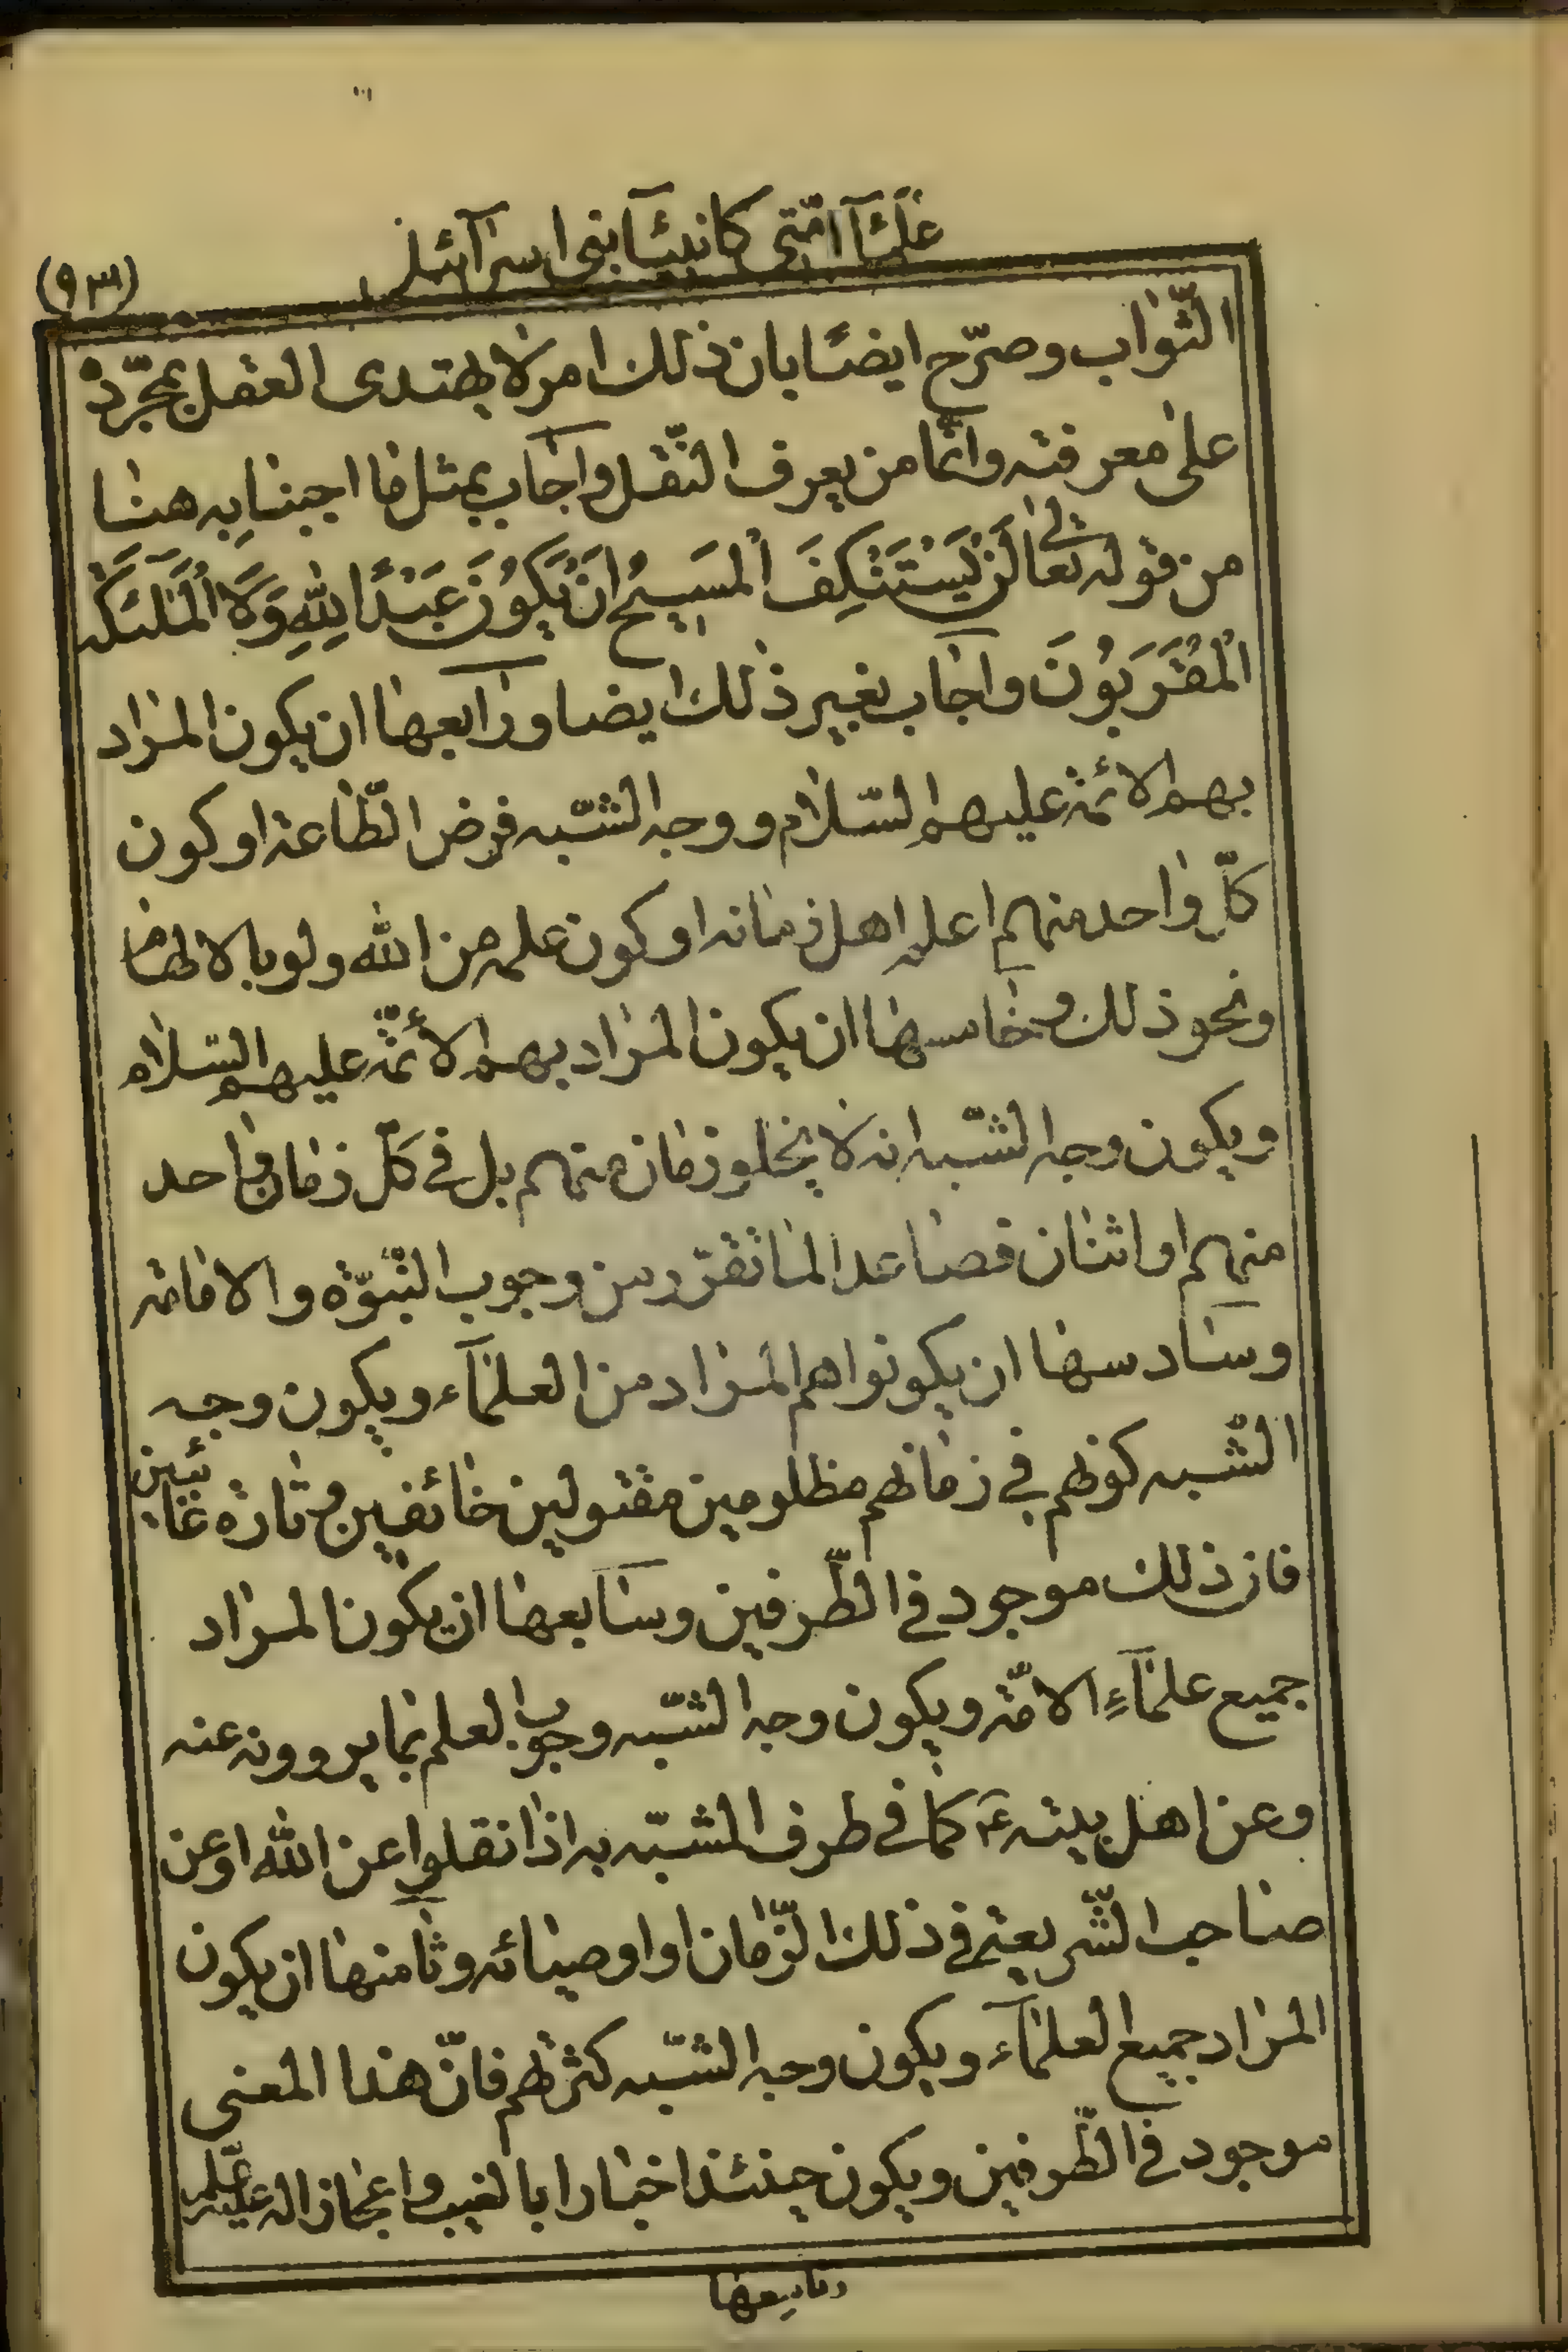 علمآء امّتی کانبیآء بنی اسرآئیل
(٩٣)
الثّواب وصرّح ايضًا بان ذلك امر لا يهتدى العقل بمجرّده
على معرفته وانّما من يعرف النّقل واجاب بمثل ما اجبنا به هنا
من قوله تعالى لَنْ يَسْتَنْكِفَ الْمَسيحُ اَنْ يَكُونَ عَبْدًا لِلّهِ وَلَا الْمَلئكَة
الْمُقَرَّبُونَ واجاب بغير ذلك ايضا ورابعها ان يكون المراد
بهم الائمّة عليهم السّلام ووجه الشّبه فرض الطّاعة او كون
كلّ واحد منهم اعلم اهل زمانه او كون علمه من الله ولو بالالهام
ونحو ذلك وخامسها ان يكون المراد بهم الأئمّة عليهم السّلام
ويكون وجه الشّبه انه لا يخلو زمان منهم بل فى كلّ زمان واحد
منهم او اثنان فصاعدا لما تقرّر من وجوب النّبوّة والامامة
وسادسها ان يكونوا هم المراد من العلمآء ويكون وجه
الشّبه كونهم في زمانهم مظلومين مقتولين خائفين وتارة غائبين
فان ذلك موجود في الطّرفين وسابعها ان يكون المراد
جميع علمآءِ الامّة ويكون وجه الشّبه وجوب العلم بما يروونه عنه
وعن اهل بيته ع كما في طرف المشبّه به اذا نقلوا عن الله او عن
صاحب الشّريعة في ذلك الزّمان او اوصيائه وثامنها ان يكون
المراد جميع العلمآء ويكون وجه الشّبه كثرتهم فانّ هذا المعنى
موجود في الطّرفين ويكون حينئذ اخبارا بالغيب واعجازا له عليه
وتاسعها